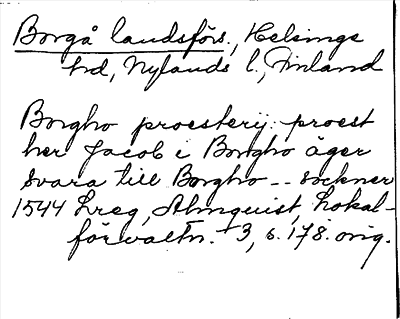 Borgå landsförs., Helsinge
hd, Nylands l., Finland
Borgho proesterij: proest
her Jacob i Borgho äger
svara till Borgho -- sockner
1544 Lreg, Almquist, Lokal-
förvaltn. 3, s. 178. orig.